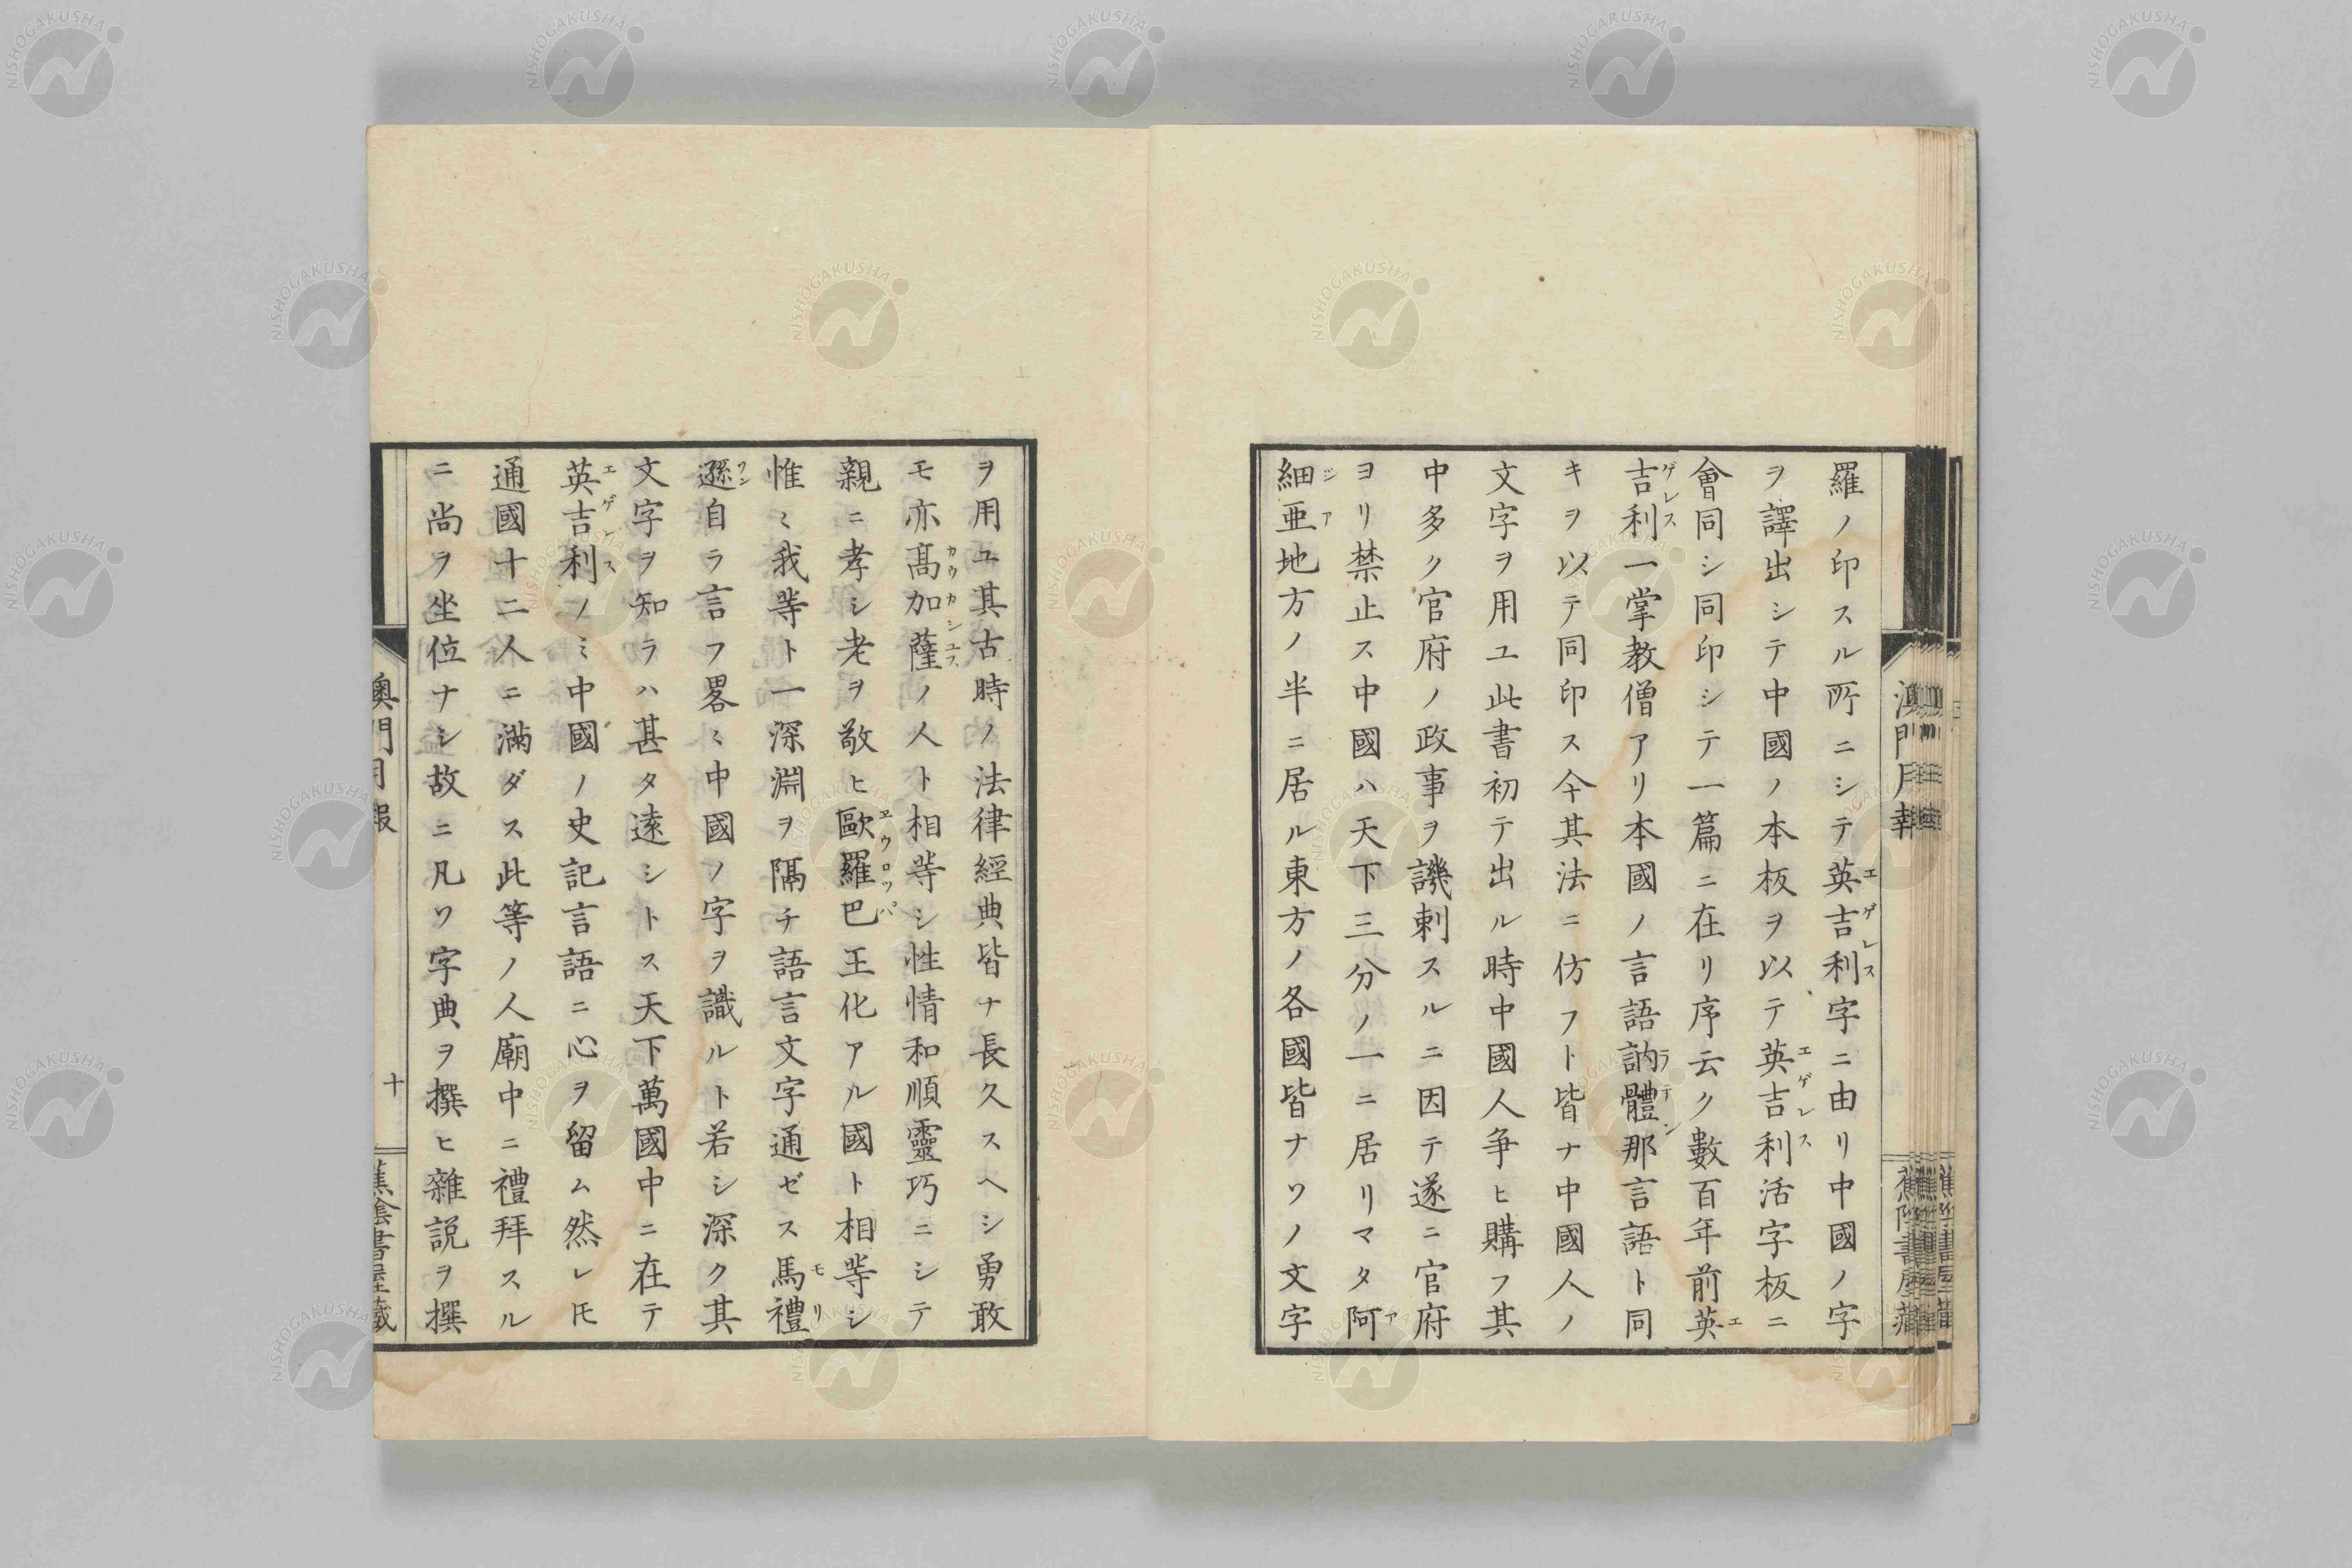 羅ノ印スル所ニシテ英吉利字ニ由リ中國ノ字
ヲ譯出シテ中國ノ本板ヲ以テ英吉利活字板ニ
會同シ同印シテ一篇ニ在リ序云ク數百年前英
吉利一掌教僧アリ本國ノ言語訥體那言語ト同
キヲ以テ同印ス今其法ニ仿フト皆ナ中國人ノ
文字ヲ用ユ此書初テ出ル時中國人争ヒ購フ其
中多ク官府ノ政事ヲ譏刺スルニ因テ遂ニ官府
ヨリ禁止ス中國ハ天下三分ノ一ニ居リマタ阿
細亜地方ノ半ニ居ル東方ノ各國皆ナソノ文字
ヲ用ユ其古時ノ法律經典皆ナ長久スヘシ勇敢
モ亦髙加薩ノ人ト相等シ性情和順靈巧ニシテ
親ニ孝シ老ヲ敬ヒ歐羅巴王化アル國ト相等シ
惟ミ我等ト一深淵ヲ隔チ語言文字通ゼス馬禮
遜自ラ言フ畧ミ中國ノ字ヲ識ルト若シ深ク其
文字ヲ知ラハ甚タ遠シトス天下萬國中ニ在テ
英吉利ノミ中國ノ史記言語ニ心ヲ留ム然レ𪜈
通國十二人ニ滿ダス此等ノ人廟中ニ禮拜スル
ニ尚ヲ坐位ナシ故ニ凡ソ字典ヲ撰ヒ雜説ヲ撰
澳門月報
十
蕉陰書屋藏
NISHOGAKUSHA